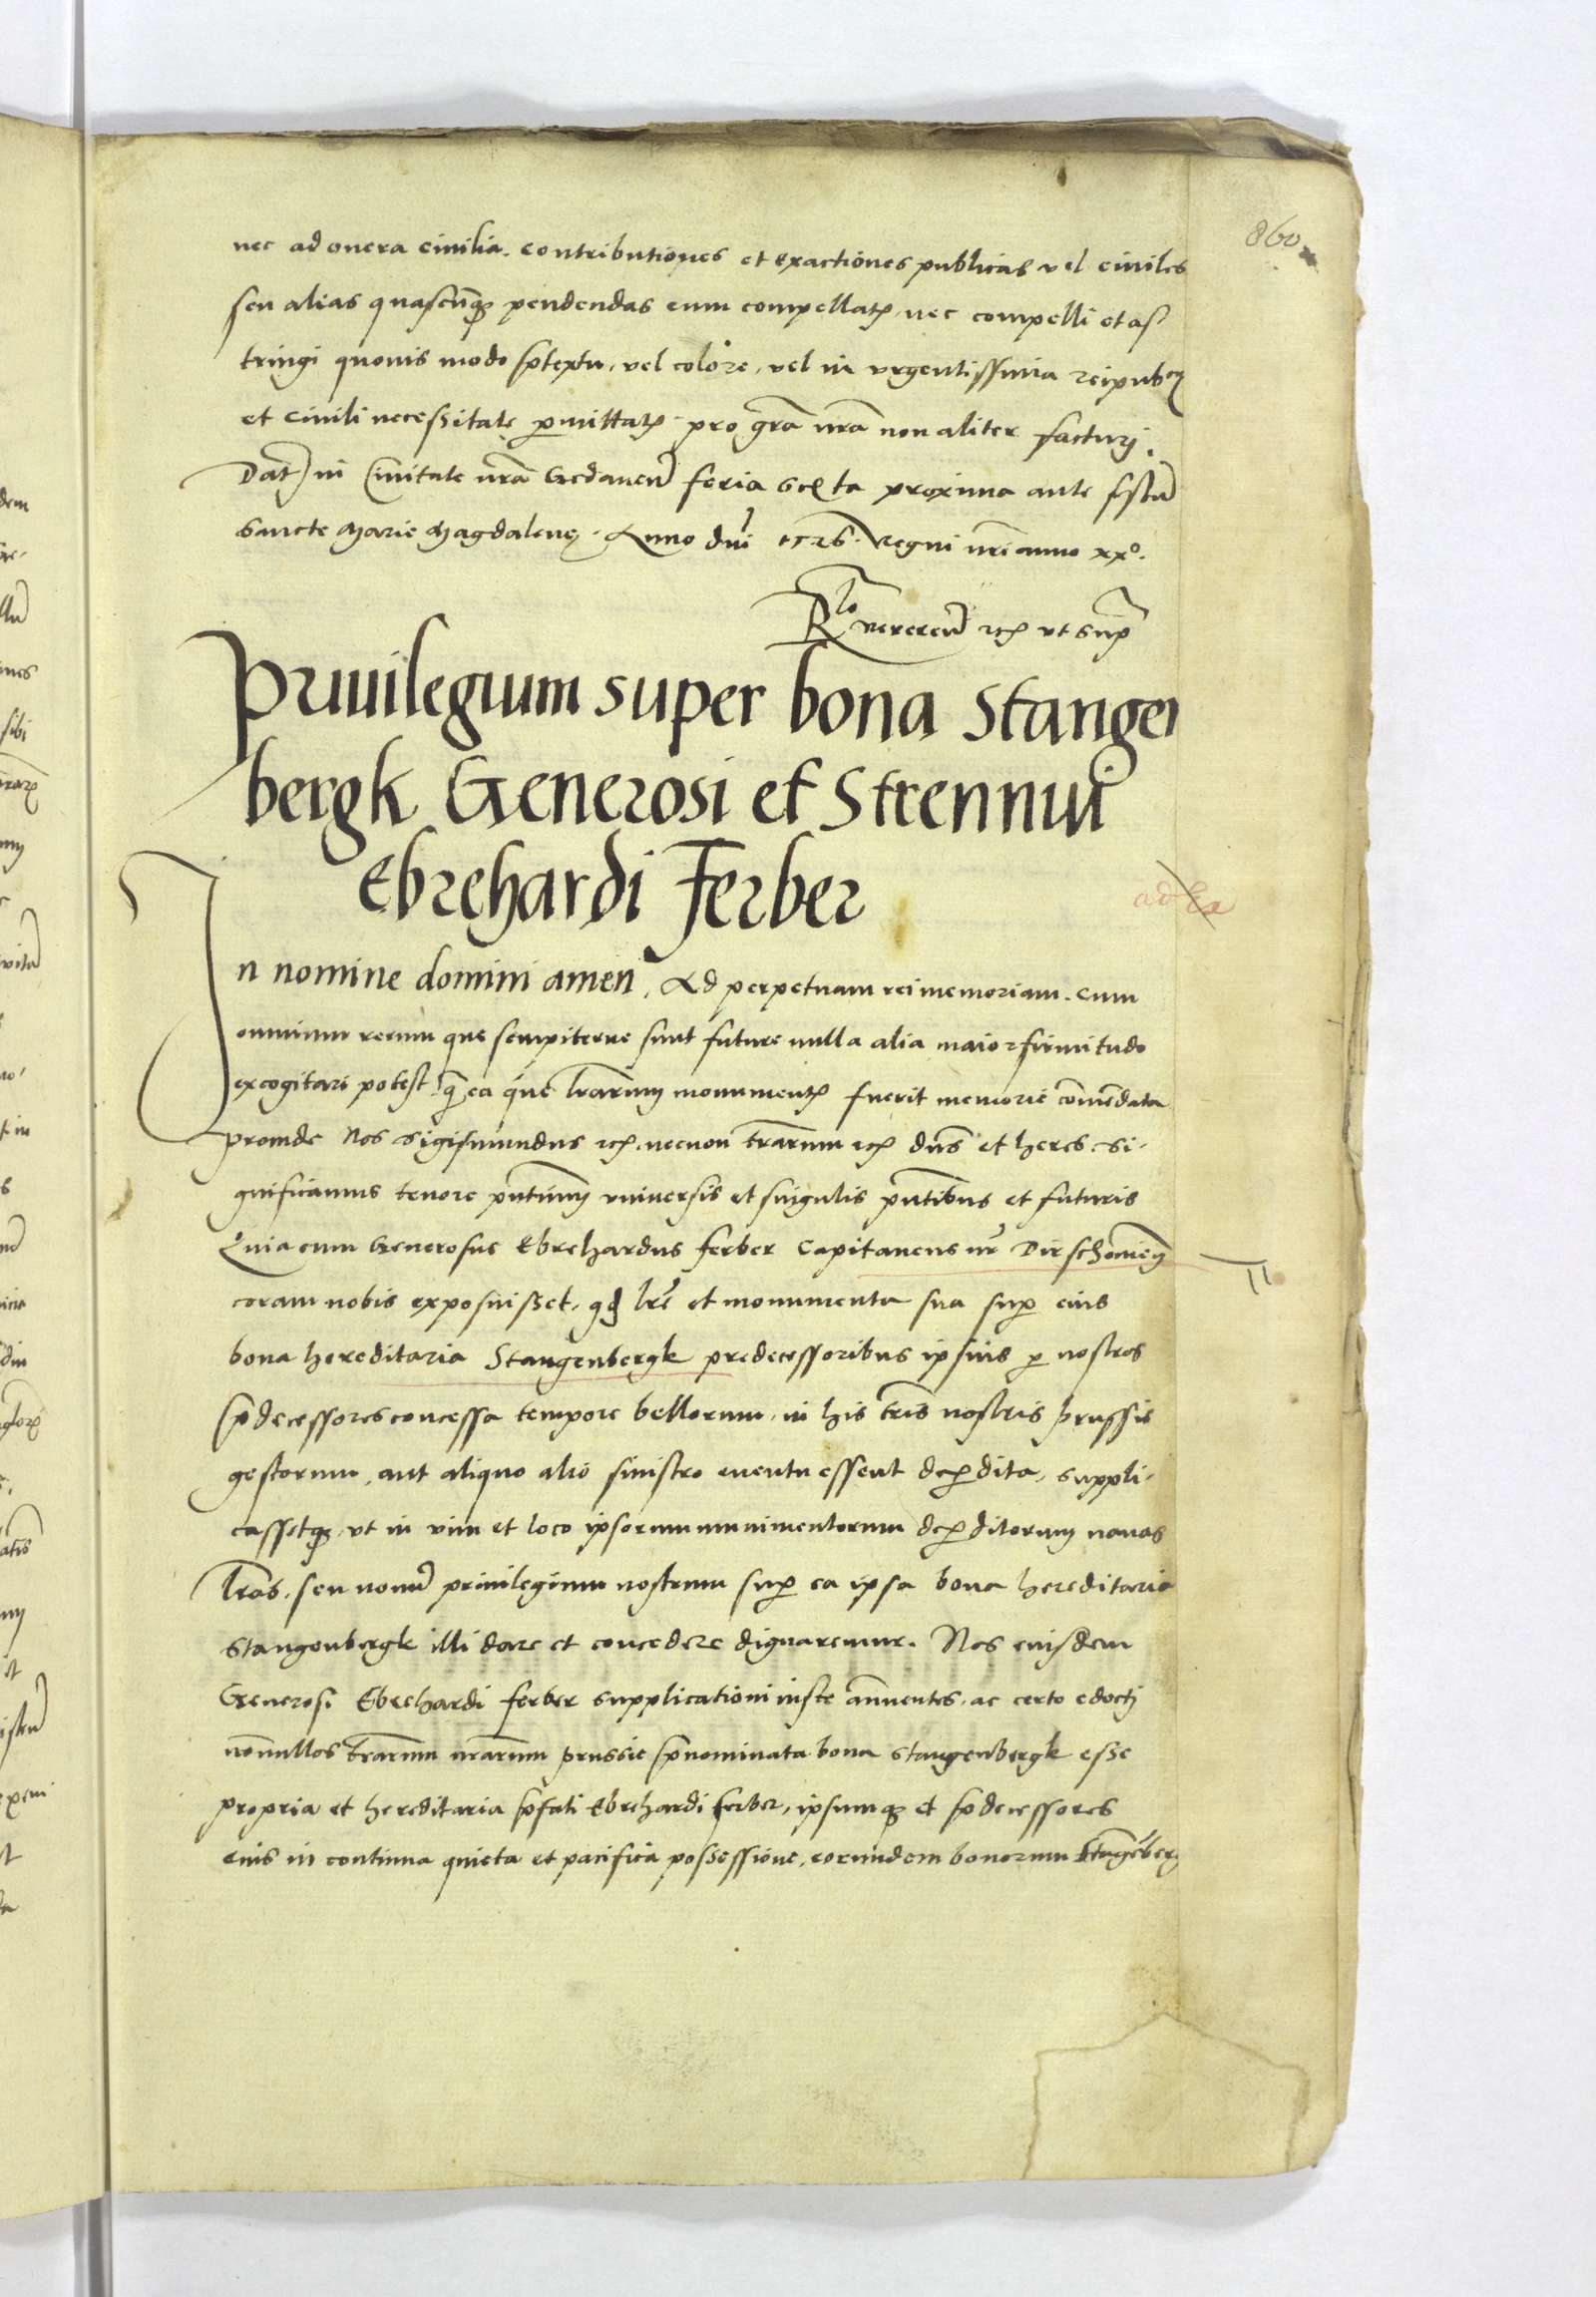 860
nec ad onera ciuilia. contributiones et exactiones publicas vel ciuiles
seu alias quascūqȝ pendendas eum compellatꝫ, nec compelli et as
tringi quouis modo p̄textu, vel colore, vel in vrgentissima reipubcę
et ciuili necessitate ꝑmittatꝫ pro gr̄a nr̄a non aliter facturj.
Dat̄ in Ciuitate nr̄a Gedaneñ feria sexta proxima ante festū
Sancte Marie Magdalenę. Anno dn̄i 1526. Regni nr̄i anno xxº.
Rlo Reuereñ ꝛcꝫ vt sup̄
Priuilegium super bona Stangen
bergk Generosi et Strennui
Ebrehardi Ferber
In nomine domini amen. Ad perpetuam rei memoriam. cum
omnium rerum que sempiterne sunt future nulla alia maior firmitudo
excogitari potest q̄ȝ ea que lr̄arum monumentꝫ fuerit memorie com̄endata
proinde Nos Sigismundus ꝛcꝫ. necnon trārum ꝛcꝫ dn̄s et heres. Si-
gnificamus tenore pn̄tium vniuersis et singulis pn̄tibus et futuris
Quia cum Generosus Ebrehardus ferber Capitaneus nr̄ Dirschouieñ
coram nobis exposuisset, qd̄ lr̄e et monumenta sua suꝑ eius
bona hereditaria Stangenbergk predecessoribus ipsius ꝑ nostros
p̄decessores concessa tempore bellorum, in his tr̄is nostris prussie
gestorum, aut aliquo alio sinistro euentu essent deꝑdita, suppli-
cassetqȝ, vt in vim et loco ipsorum munimentorum deꝑditorum nouas
lr̄as, seu nouū priuilegium nostrum suꝑ ea ipsa bona hereditaria
Stangenbergk illi dare et concedere dignaremur. Nos eiusdem
Generosi Ebrehardi ferber supplicationi iuste an̄uentes, ac certo edocti
non̄ullos trārum nr̄arum prussie p̄nominata bona Stangenbergk esse
propria et hereditaria p̄fati Ebrehardi ferber, ipsumqȝ et p̄decessores
eius in continua quieta et pacifica possessione, eorundem bonorum Stangēberg